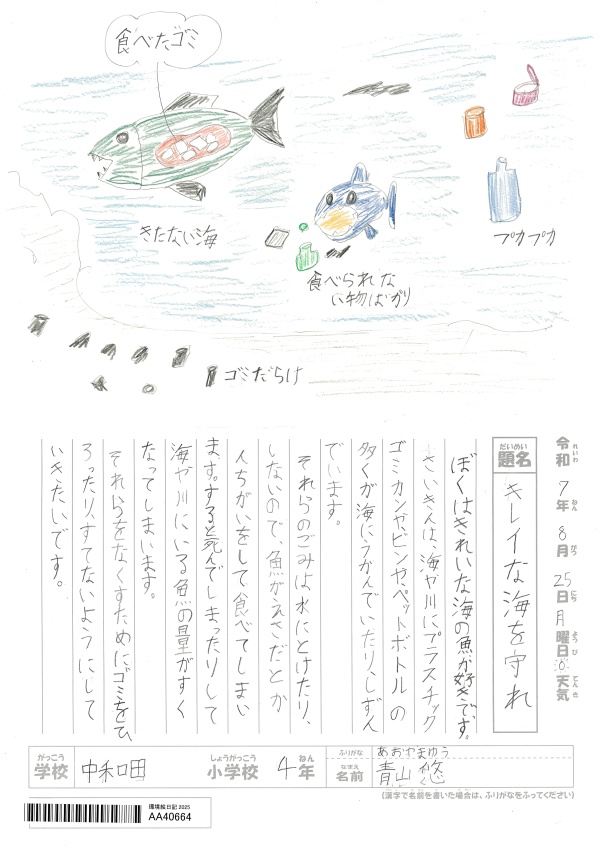 食べたゴミ
きたない海
食べられな
い物ばかり
プカプカ
ゴミだらけ
令和7年8月25日月曜日 天気
れいわ ねん がつ にち ようび てんき
だいめい
題名
キレイな海を守れ
ぼくはきれいな海の魚が好きです。
さいきんは海や川にプラスチック
ゴミカンや、ビンや、ペットボトルの
多くが海にうかんでいたり、しずん
でいます。
それらのごみは水にとけたり、
しないので、魚がえさだとか
んちがいをして食べてしまい
ます。すると死んでしまったりして
海や川にいる魚の量がすく
なってしまいます。
それらをなくすためにゴミをひ
ろったり、すてないようにして
いきたいです。
がっこう
学校
中和田
しょうがっこう
小学校
4年
ねん
ふりがな
あおやまゆう
なまえ
名前
青山 悠
(漢字で名前を書いた場合は、ふりがなをふってください)
環境絵日記 2025
AA40664